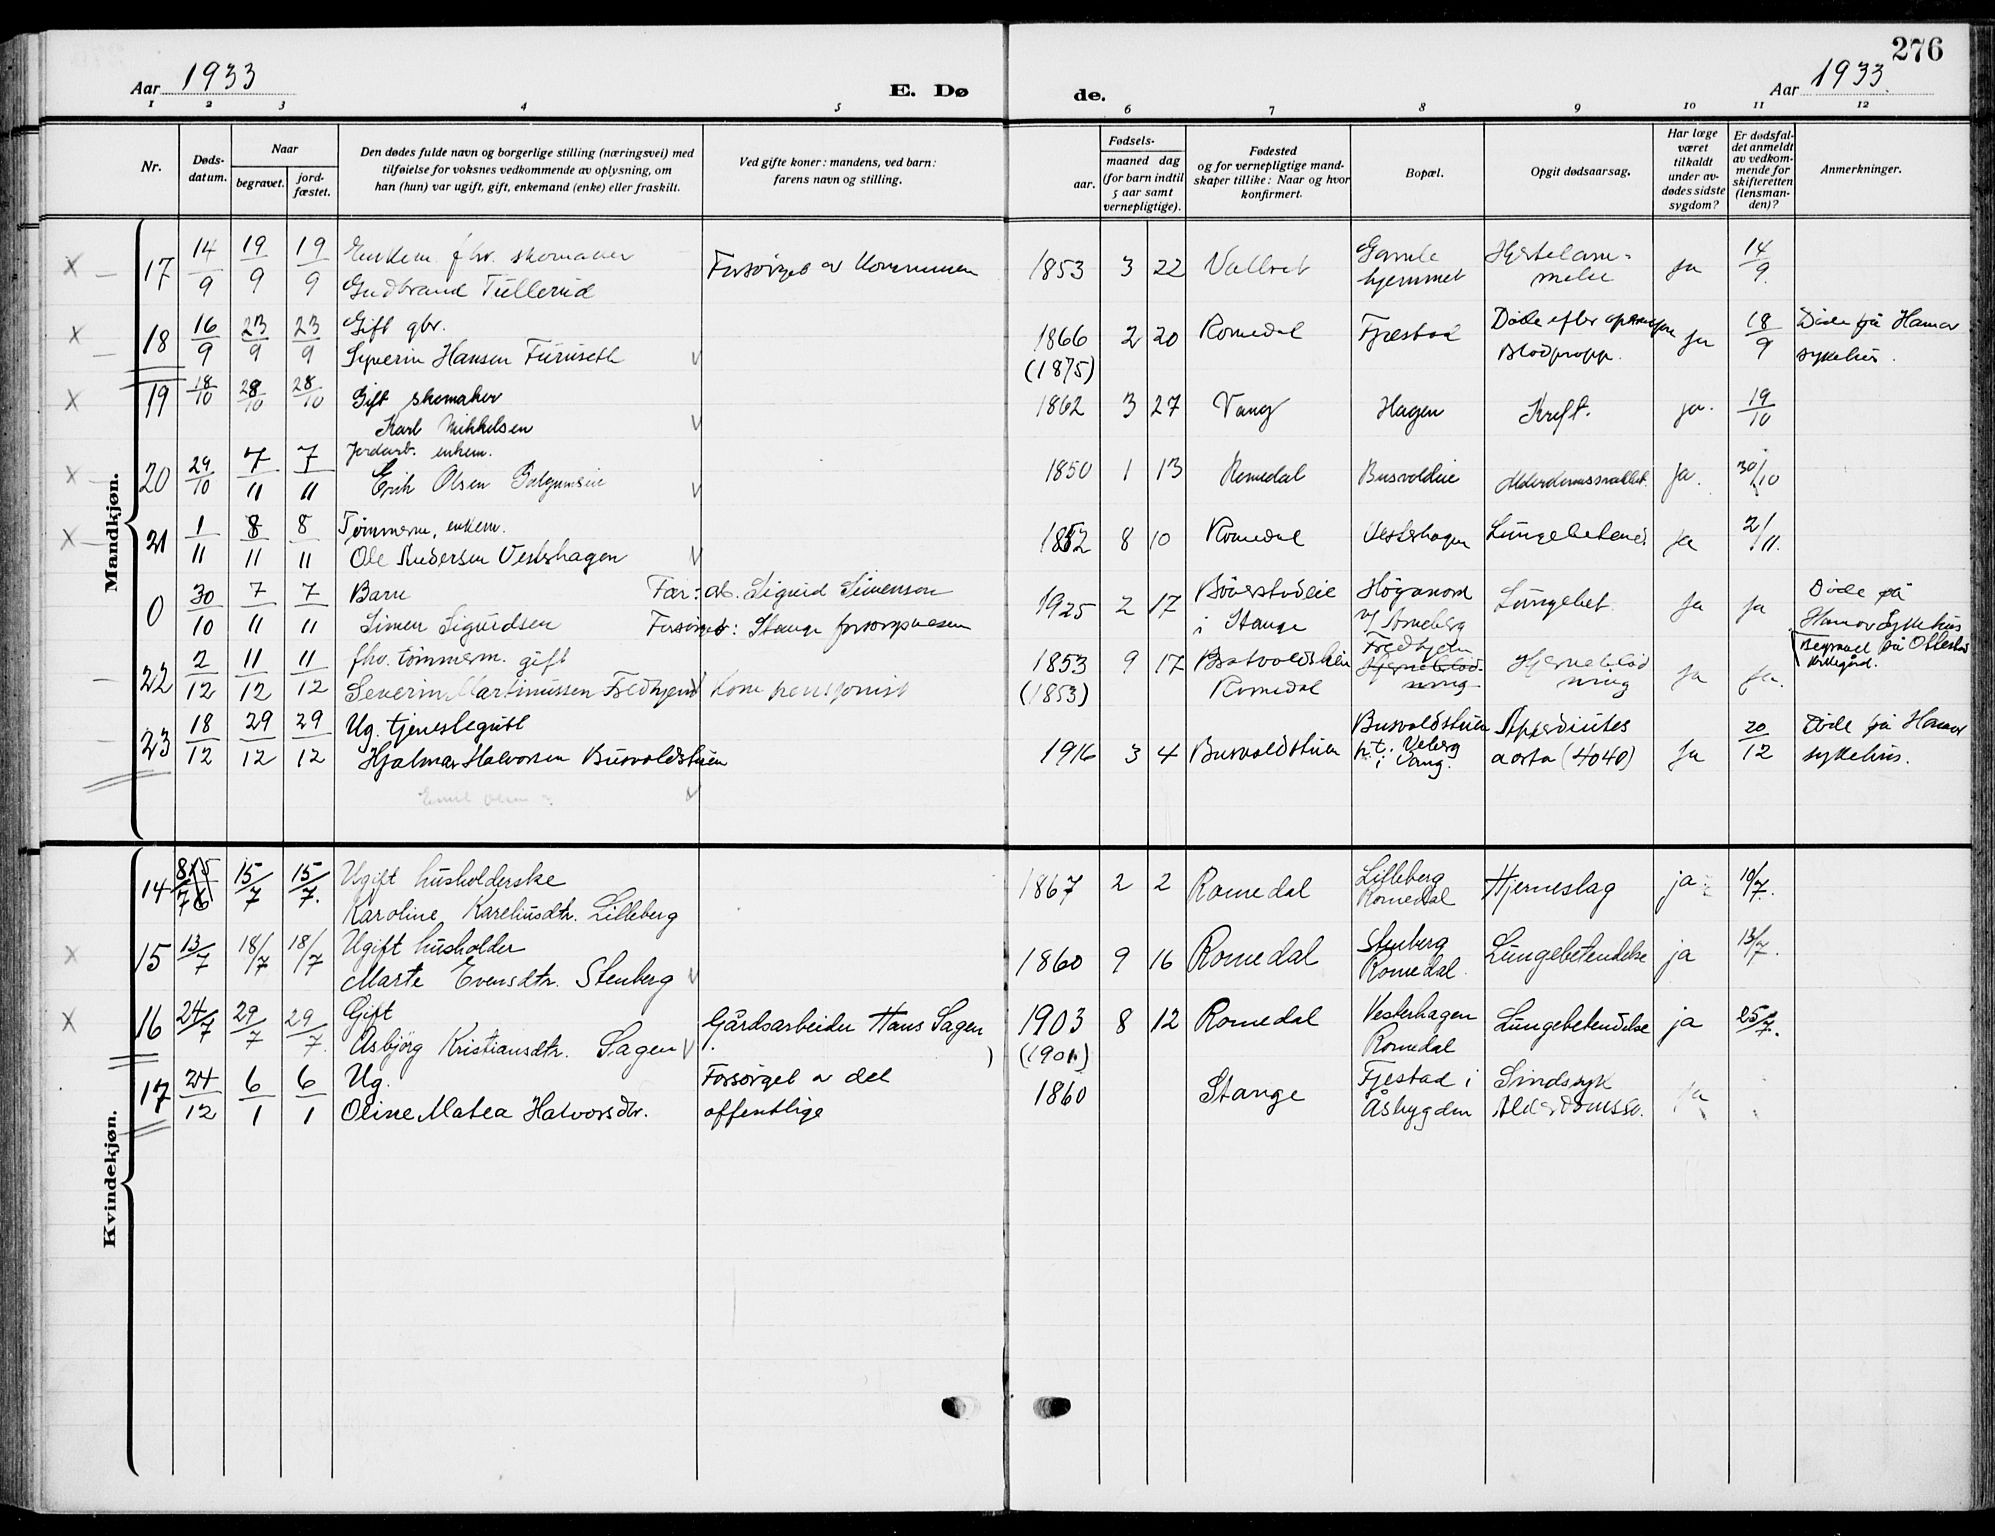 276
Aar 1933
E. Døde.
Aar 1933.
1 2 3 4 5 6 7 8 9 10 11 12
Nr.
Døds-datum.
Naar
begravet.
jord-fæstet.
Den dødes fulde navn og borgerlige stilling (næringsvei) med
tilføielse for voksnes vedkommende av oplysning, om
han (hun) var ugift, gift, enkemand (enke) eller fraskilt.
Ved gifte koner: mandens, ved barn:
farens navn og stilling.
Fødsels-
aar.
maaned dag
(for barn indtil
5 aar samt
vernepligtige).
Fødested
og for vernepligtige mand-
skaper tillike: Naar og hvor
konfirmert.
Bopæl.
Opgit dødsaarsag.
Har læge
været
tilkaldt
under av-
dødes sidste
sygdom?
Er dødsfal-
det anmeldt
av vedkom-
mende for
skifteretten
(lensman-
den)?
Anmerkninger.
Mandkjøn.
17 14/9 19/9 19/9 Enkem. fhv. skomaker
Gudbrand Tullerud
Forsørget av Kommunen
1853 3 22 Vallset
Gamle
hjemmet
Hjertelam-
melse
ja 14/9.
18 16/9 23/9 23/9 Gift gbr.
Syverin Hansen Furuseth
1866 (1875) 2 20 Romedal Fjæstad
Døde efter operasjon
Blodpropp.
ja 18/9
Døde på Hamar
sykehus.
19 18/10 28/10 28/10 Gift skomaker
Karl Mikkelsen
1862 3 27 Vang Hagen Kreft. ja. 19/10
20 29/10 7/11 7/11 Jordarb. enkem.
Erik Olsen
1850 1 13 Romedal Busvoldeie Alderdomssvakhet. ja. 30/10
21 1/11 8/11 8/11 Tømmerm, enkem.
Ole Andersen Vestshagen
1852 8 10 Romedal Vestshagen Lungebetend. ja 2/11.
0 30/10 7/11 7/11 Barn
Simen Sigurdsen
Far: arb. Sigurd Simenson
Forsørget: Stange forsorgsvesen
1925 2 17
i Stange
Lungebet. ja ja
Døde på
Hamar sykehus
Begravet på Ottestad
kirkegård.
22 2/12 11/12 11/12 fhv. tømmerm. gift
Severin Martinussen Fredhjem
kom. pensjonist
1853 (1853) 9 17
Romedal
Fredhjem
Hjerneblød
ning
Hjerneblød
ning
ja ja.
23 18/12 29/12 29/12 Ug. tjenestegutt
Hjalmar Halvorsen Busvoldstuen
1916 3 4 Busvoldstuen
Busvoldstuen
p.t. Veberg
i Vang.
aorta (4040)
ja 20/12
Døde på Hamar
sykehus.
Kvindekjøn.
14 8/7 15/7 15/7. Ugift husholderske
Karoline Kareliusdtr. Lilleberg
1867 2 2 Romedal
Lilleberg
Romedal
Hjerneslag ja 10/7.
15 13/7 18/7 18/7 Ugift husholder
Marte Evensdtr. Stenberg
1860 9 16 Romedal
Stenberg
Romedal.
Lungebetendelse ja 13/7.
16 24/7 29/7 29/7. Gift
Asbjörg Kristiansdtr. Sagen
Gårdsarbeider Hans Sagen
1903 (1901) 8 12 Romedal
Vesterhagen
Romedal
Lungebetendelse ja 25/7.
17 24/12 6/1 6/1 Ug.
Oline Matea Halvorsdtr.
Forsørget av det
offentlige
1860 Stange
Fjestad i
Åsbygden
Sindssyk
Alderdomssv.
ja